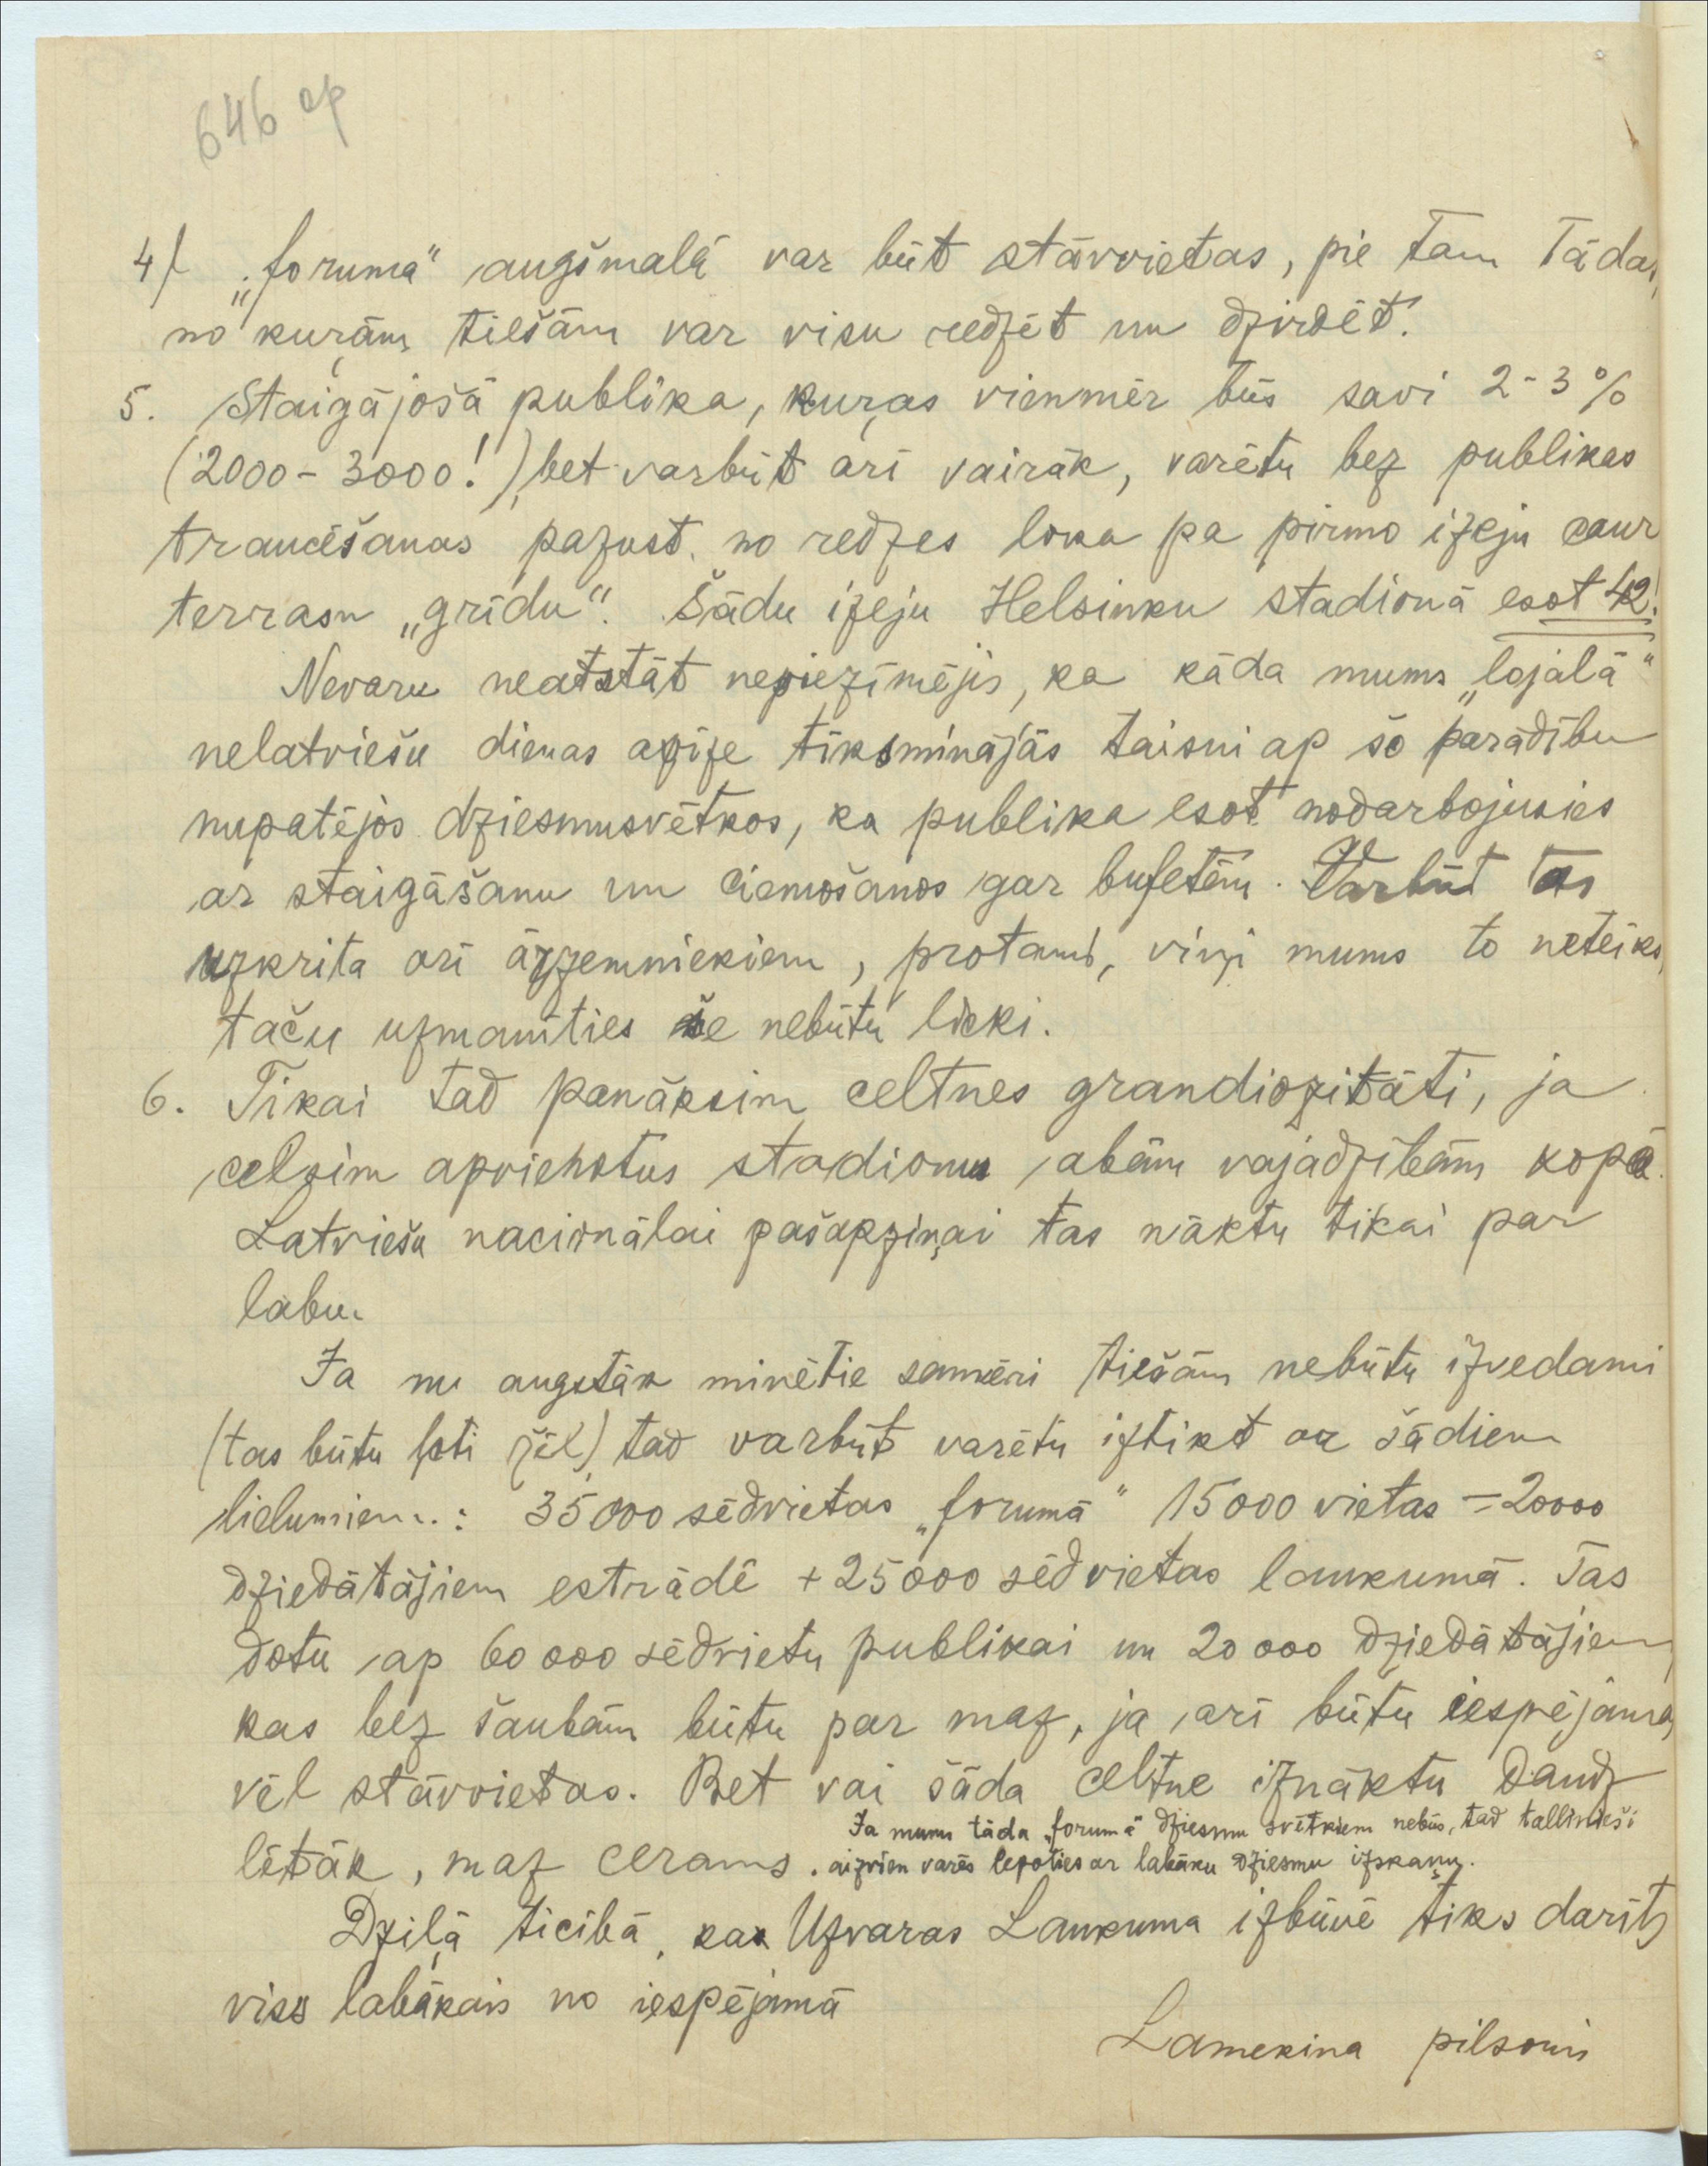 646 op
4) „foruma“ augšmalā var būt stāvvietas, pie tam tādas,
no kuŗām tiešām var visu redzēt un dzirdēt.
5. Staigājošā publika, kuŗas vienmēr būs savi 2-3%
(2000-3000!), bet varbūt arī vairāk, varētu bez publikas
traucēšanas pazust no redzes loka pa pirmo izeju caur
terrasu „grīdu“. Šādu izeju Helsinku stadionā esot 42!
Nevaru neatstāt nepiezīmējis, ka kāda mums „lojālā“
nelatviešu dienas avīze tīksminājās taisni ap šo parādību
nupatējos dziesmusvētkos, ka publika esot nodarbojusies
ar staigāšanu un ciemošanos gar bufetēm. Varbūt tas
uzkrita arī ārzemniekiem, protams, viņi mums to neteiks,
taču uzmanīties še nebūtu lieki.
6. Tikai tad panāksim celtnes grandiozitāti, ja
celsim apvienotus stadionu abām vajadzībām kopā.
Latviešu nacionālai pašapziņai tas nāktu tikai par
labu.
Ja nu augstāk minētie samēri tiešām nebūtu izvedami
(tas būtu ļoti žēl), tad varbūt varētu iztikt ar šādiem
lielumiem: 35000 sēdvietas „forumā“ 15000 vietas – 20000
dziedātājiem estrādē + 25000 sēdvietas laukumā. Tas
dotu ap 60000 sēdvietu publikai un 20000 dziedātājiem,
kas bez šaubām būtu par maz, ja arī būtu iespējamas
vēl stāvvietas. Bet vai šāda celtne iznāktu daudz
lētāk, maz cerams. Ja mums tāda „forumā“ dziesmu svētkiem nebūs, tad tallinieši
aizvien varēs lepoties ar labāku dziesmu izskaņu.
Dziļā ticībā, ka Uzvaras Laukuma izbūvē tiks darīts
viss labākais no iespējamā
Lamekina pilsonis